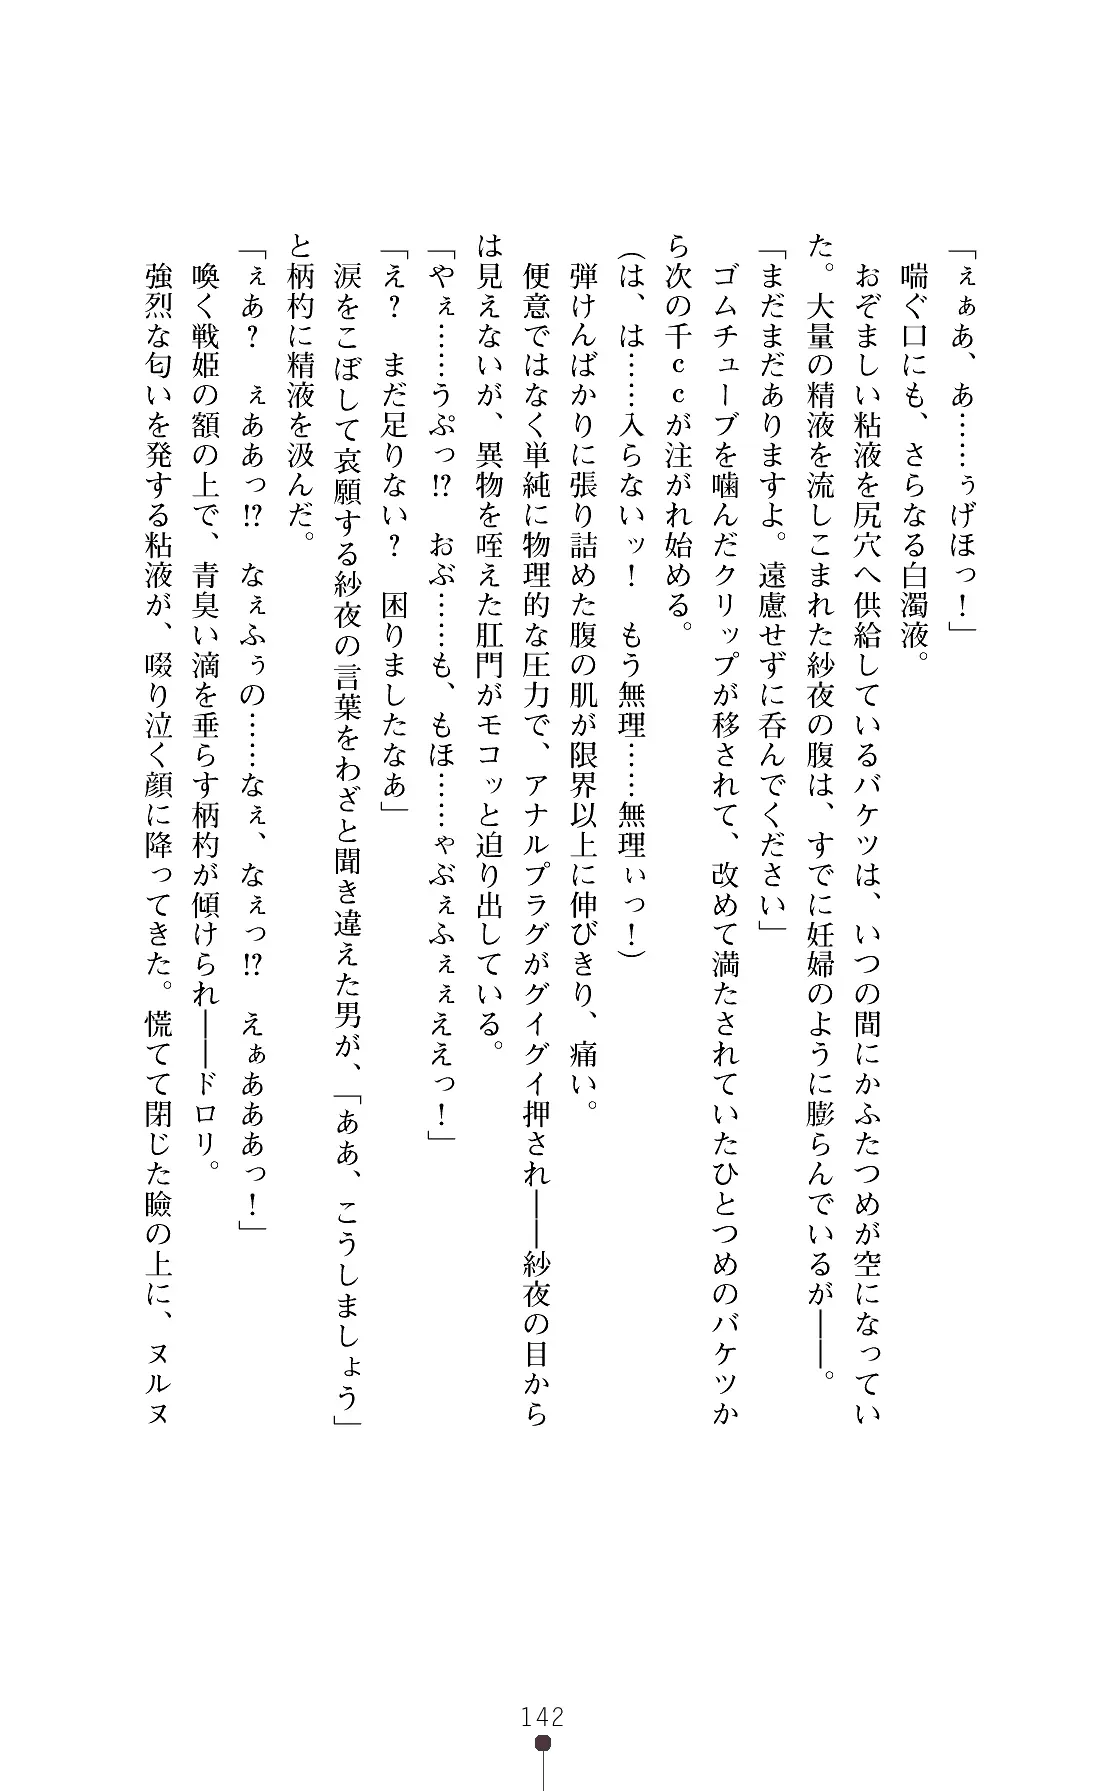 「ぇぁあ、あ……ぅげほっ！」
　喘ぐ口にも、さらなる白濁液。
　おぞましい粘液を尻穴へ供給しているバケツは、いつの間にかふたつめが空になってい
た。大量の精液を流しこまれた紗夜の腹は、すでに妊婦のように膨らんでいるが――。
「まだまだありますよ。遠慮せずに呑んでください」
　ゴムチューブを噛んだクリップが移されて、改めて満たされていたひとつめのバケツか
ら次の千ｃｃが注がれ始める。
（は、は……入らないッ！　もう無理……無理ぃっ！）
　弾けんばかりに張り詰めた腹の肌が限界以上に伸びきり、痛い。
　便意ではなく単純に物理的な圧力で、アナルプラグがグイグイ押され――紗夜の目から
は見えないが、異物を咥えた肛門がモコッと迫り出している。
「やぇ……うぷっ!?　おぶ……も、もほ……ゃぶぇふぇぇええっ！」
「え？　まだ足りない？　困りましたなあ」
　涙をこぼして哀願する紗夜の言葉をわざと聞き違えた男が、「ああ、こうしましょう」
と柄杓に精液を汲んだ。
「ぇあ？　ぇああっ!?　なぇふぅの……なぇ、なぇっ!?　えぁあああっ！」
　喚く戦姫の額の上で、青臭い滴を垂らす柄杓が傾けられ――ドロリ。
　強烈な匂いを発する粘液が、啜り泣く顔に降ってきた。慌てて閉じた瞼の上に、ヌルヌ
142